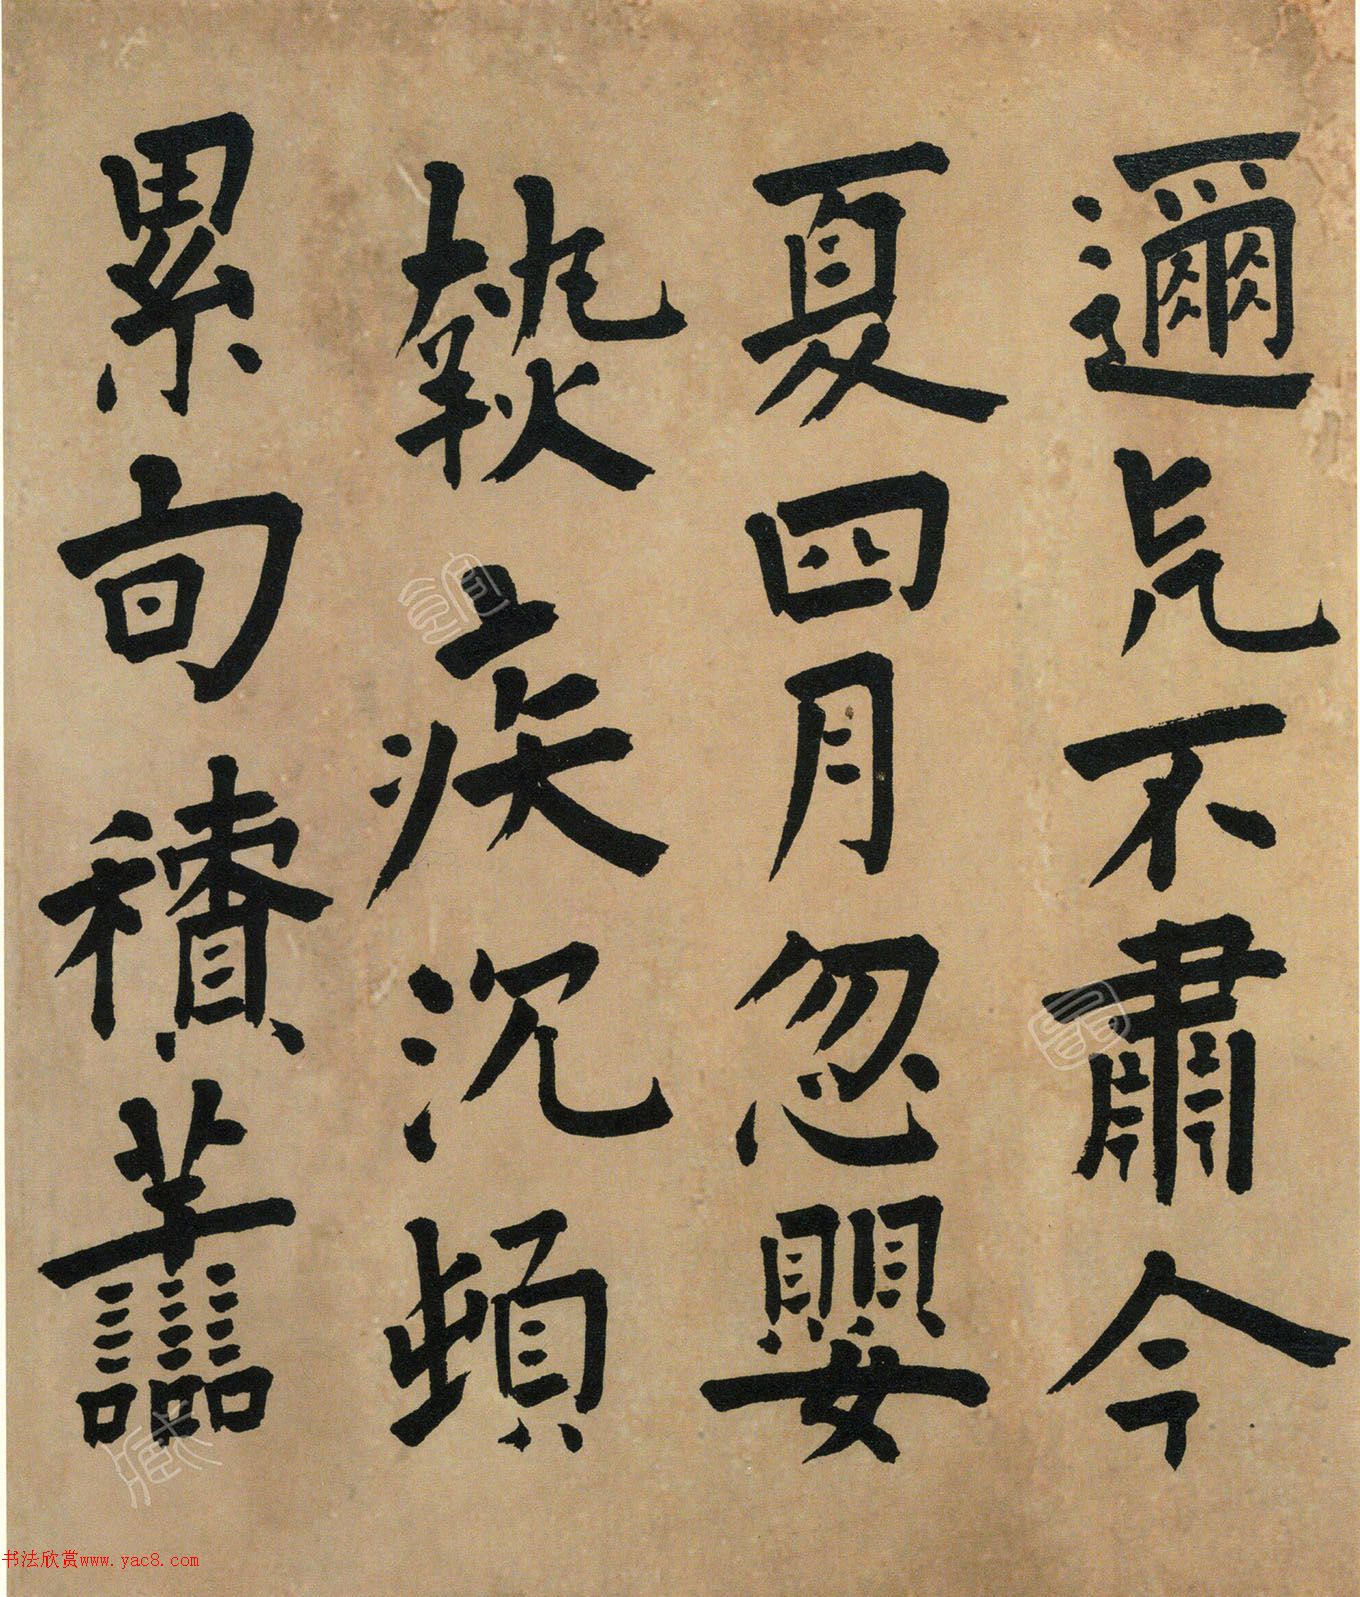 邇不肅今
夏四月忽嬰
熱疾沉頓
累旬積譱
书法欣赏www.yac8.com